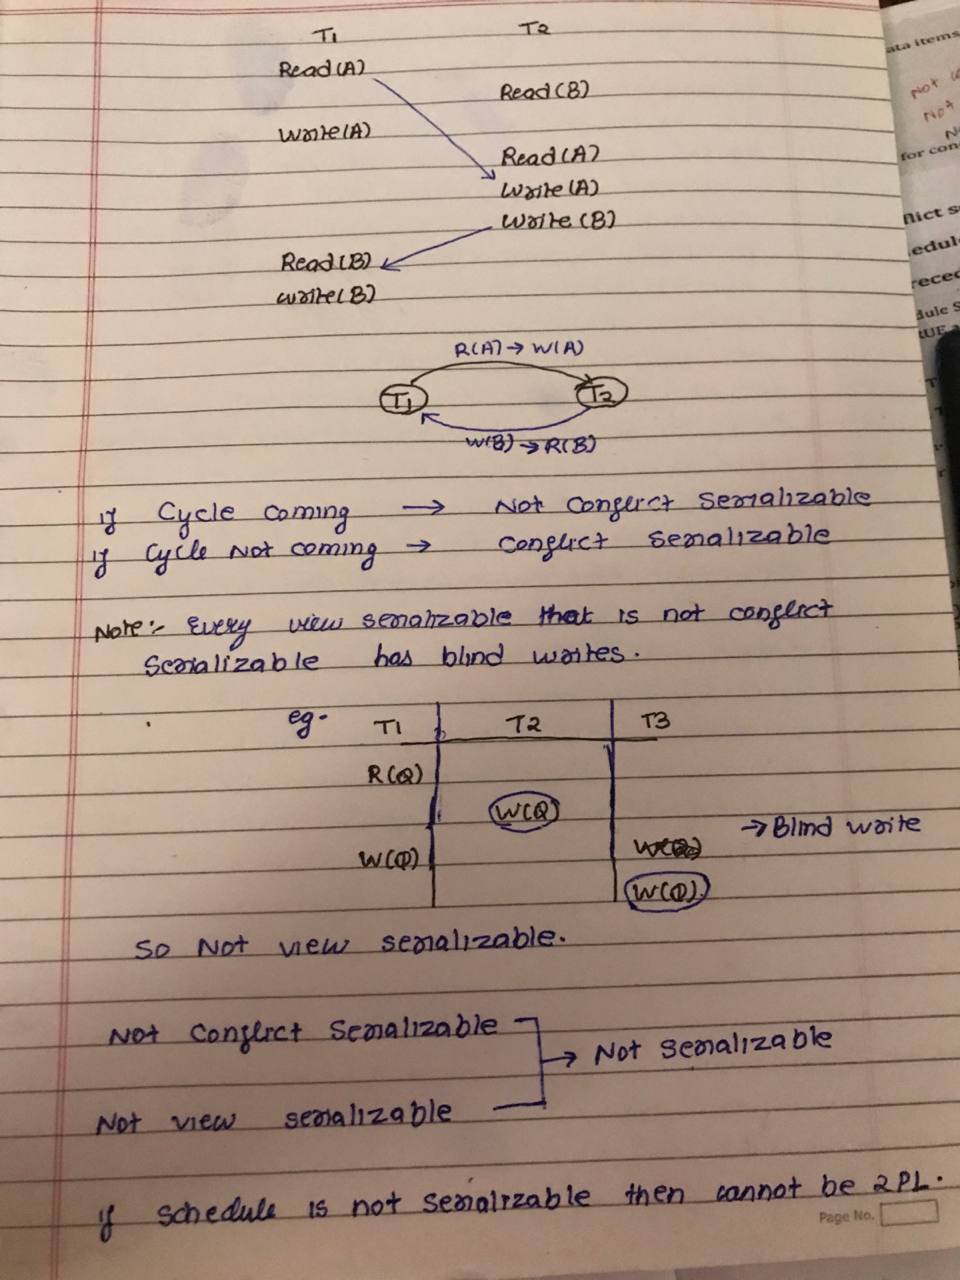 T1 T2
Read(A)
Read(B)
Write(A)
Read(A)
Write(A)
Write(B)
Read(B)
Write(B)
R(A) → W(A)
T1 T2
W(B) → R(B)
if Cycle coming → Not Conflict Serializable
if Cycle Not coming → Conflict Serializable
Note:- Every view serializable that is not conflict
Serializable has blind writes.
eg. T1 T2 T3
R(Q)
W(Q)
→ Blind write
W(Q)
W(Q)
So Not view serializable.
Not Conflict Serializable
→ Not Serializable
Not view serializable
if schedule is not serializable then cannot be 2PL.
Page No.
ata items
Not
Not
for con
flict s
edul
rece
dule S